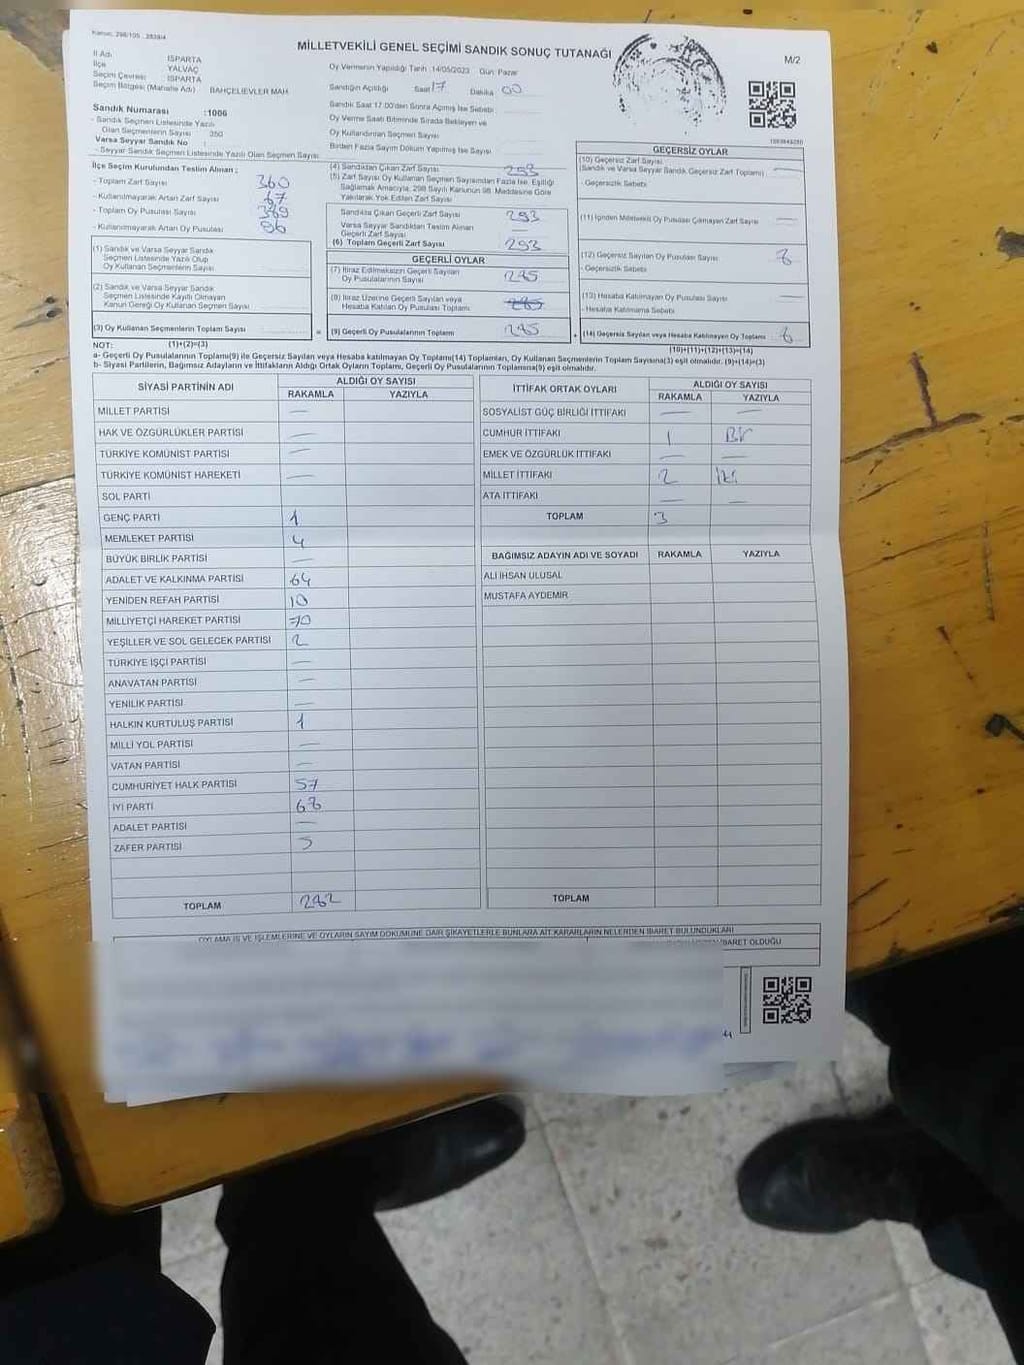 Kanun: 298/105 . 2839/4
MİLLETVEKİLİ GENEL SEÇİMİ SANDIK SONUÇ TUTANAĞI
M/2
İl Adı ISPARTA
İlçe YALVAÇ
Seçim Çevresi ISPARTA
Seçim Bölgesi (Mahalle Adı) BAHÇELİEVLER MAH.
Sandık Numarası :1006
- Sandık Seçmen Listesinde Yazılı
Olan Seçmenlerin Sayısı 350
Varsa Seyyar Sandık No :
- Seyyar Sandık Seçmen Listesinde Yazılı Olan Seçmen Sayısı
Oy Vermenin Yapıldığı Tarih :14/05/2023 Gün: Pazar
Sandığın Açıldığı Saat 17 Dakika 00
Sandık Saat 17.00'den Sonra Açılmış İse Sebebi
Oy Verme Saati Bitiminde Sırada Bekleyen ve
Oy Kullandırılan Seçmen Sayısı
Birden Fazla Sayım Döküm Yapılmış İse Sayısı
İlçe Seçim Kurulundan Teslim Alınan ;
- Toplam Zarf Sayısı 360
- Kullanılmayarak Artan Zarf Sayısı 67
- Toplam Oy Pusulası Sayısı
- Kullanılmayarak Artan Oy Pusulası
(1) Sandık ve Varsa Seyyar Sandık
Seçmen Listesinde Yazılı Olup
Oy Kullanan Seçmenlerin Sayısı
(2) Sandık ve Varsa Seyyar Sandık
Seçmen Listesinde Kayıtlı Olmayan
Kanun Gereği Oy Kullanan Seçmen Sayısı
(3) Oy Kullanan Seçmenlerin Toplam Sayısı
(1)+(2)=(3)
(4) Sandıktan Çıkan Zarf Sayısı 293
(5) Zarf Sayısı Oy Kullanan Seçmen Sayısından Fazla İse, Eşitliği
Sağlamak Amacıyla, 298 Sayılı Kanunun 98. Maddesine Göre
Yakılarak Yok Edilen Zarf Sayısı
Sandıkta Çıkan Geçerli Zarf Sayısı 293
Varsa Seyyar Sandıktan Teslim Alınan
Geçerli Zarf Sayısı —
(6) Toplam Geçerli Zarf Sayısı 293
GEÇERLİ OYLAR
(7) İtiraz Edilmeksizin Geçerli Sayılan
Oy Pusulalarının Sayısı 285
(8) İtiraz Üzerine Geçerli Sayılan veya
Hesaba Katılan Oy Pusulası Toplamı
= (9) Geçerli Oy Pusulalarının Toplamı 285
GEÇERSİZ OYLAR
(10) Geçersiz Zarf Sayısı
(Sandık ve Varsa Seyyar Sandık Geçersiz Zarf Toplamı) —
- Geçersizlik Sebebi
(11) İçinden Milletvekili Oy Pusulası Çıkmayan Zarf Sayısı —
(12) Geçersiz Sayılan Oy Pusulası Sayısı 8
- Geçersizlik Sebebi
(13) Hesaba Katılmayan Oy Pusulası Sayısı —
- Hesaba Katılmama Sebebi
+ (14) Geçersiz Sayılan veya Hesaba Katılmayan Oy Toplamı 8
(10)+(11)+(12)+(13)=(14)
NOT:
a- Geçerli Oy Pusulalarının Toplamı(9) ile Geçersiz Sayılan veya Hesaba katılmayan Oy Toplamı(14) Toplamları, Oy Kullanan Seçmenlerin Toplam Sayısına(3) eşit olmalıdır. (9)+(14)=(3)
b- Siyasi Partilerin, Bağımsız Adayların ve İttifakların Aldığı Ortak Oyların Toplamı, Geçerli Oy Pusulalarının Toplamına(9) eşit olmalıdır.
SİYASİ PARTİNİN ADI ALDIĞI OY SAYISI
RAKAMLA YAZIYLA
MİLLET PARTİSİ —
HAK VE ÖZGÜRLÜKLER PARTİSİ —
TÜRKİYE KOMÜNİST PARTİSİ —
TÜRKİYE KOMÜNİST HAREKETİ —
SOL PARTİ
GENÇ PARTİ 1
MEMLEKET PARTİSİ 4
BÜYÜK BİRLİK PARTİSİ —
ADALET VE KALKINMA PARTİSİ 64
YENİDEN REFAH PARTİSİ 10
MİLLİYETÇİ HAREKET PARTİSİ 70
YEŞİLLER VE SOL GELECEK PARTİSİ 2
TÜRKİYE İŞÇİ PARTİSİ —
ANAVATAN PARTİSİ —
YENİLİK PARTİSİ —
HALKIN KURTULUŞ PARTİSİ 1
MİLLİ YOL PARTİSİ —
VATAN PARTİSİ —
CUMHURİYET HALK PARTİSİ 57
İYİ PARTİ 68
ADALET PARTİSİ —
ZAFER PARTİSİ 5
TOPLAM 282
İTTİFAK ORTAK OYLARI ALDIĞI OY SAYISI
RAKAMLA YAZIYLA
SOSYALİST GÜÇ BİRLİĞİ İTTİFAKI — —
CUMHUR İTTİFAKI 1 Bir
EMEK VE ÖZGÜRLÜK İTTİFAKI — —
MİLLET İTTİFAKI 2 İki
ATA İTTİFAKI — —
TOPLAM 3
BAĞIMSIZ ADAYIN ADI VE SOYADI RAKAMLA YAZIYLA
ALİ İHSAN ULUSAL
MUSTAFA AYDEMİR
TOPLAM
OYLAMA İŞ VE İŞLEMLERİNE VE OYLARIN SAYIM DÖKÜMÜNE DAİR ŞİKAYETLERLE BUNLARA AİT KARARLARIN NELERDEN İBARET BULUNDUKLARI
İBARET OLDUĞU